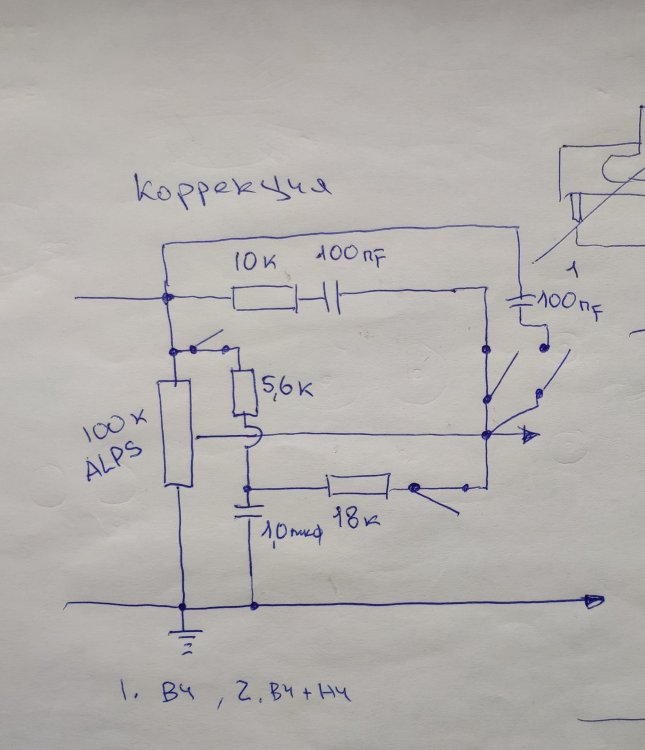 Коррекция
10к 100пF
1
100пF
5,6к
100к
ALPS
18к
1,0мкф
1. ВЧ , 2. ВЧ+НЧ